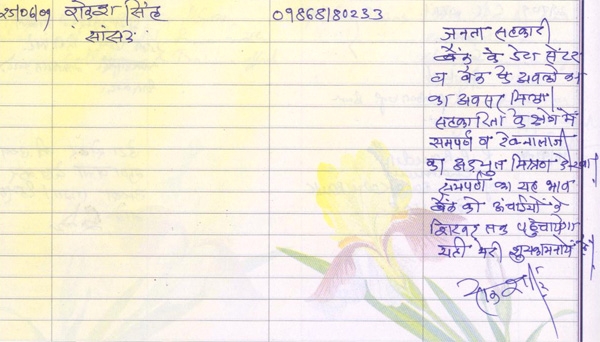 25/06/09 राकेश सिंह 09868180233
सांसद
जनता सहकारी
बैंक के डेटा सेंटर
व बैंक के अवलोकन
का अवसर मिला।
सहकारिता के क्षेत्र में
समर्पण व टेक्नालाजी
का अद्भुत मिश्रण देखा
समर्पण का यह भाव
बैंक को ऊंचाईयों के
शिखर तक पहुंचायेगा
यही मेरी शुभकामनायें हैं